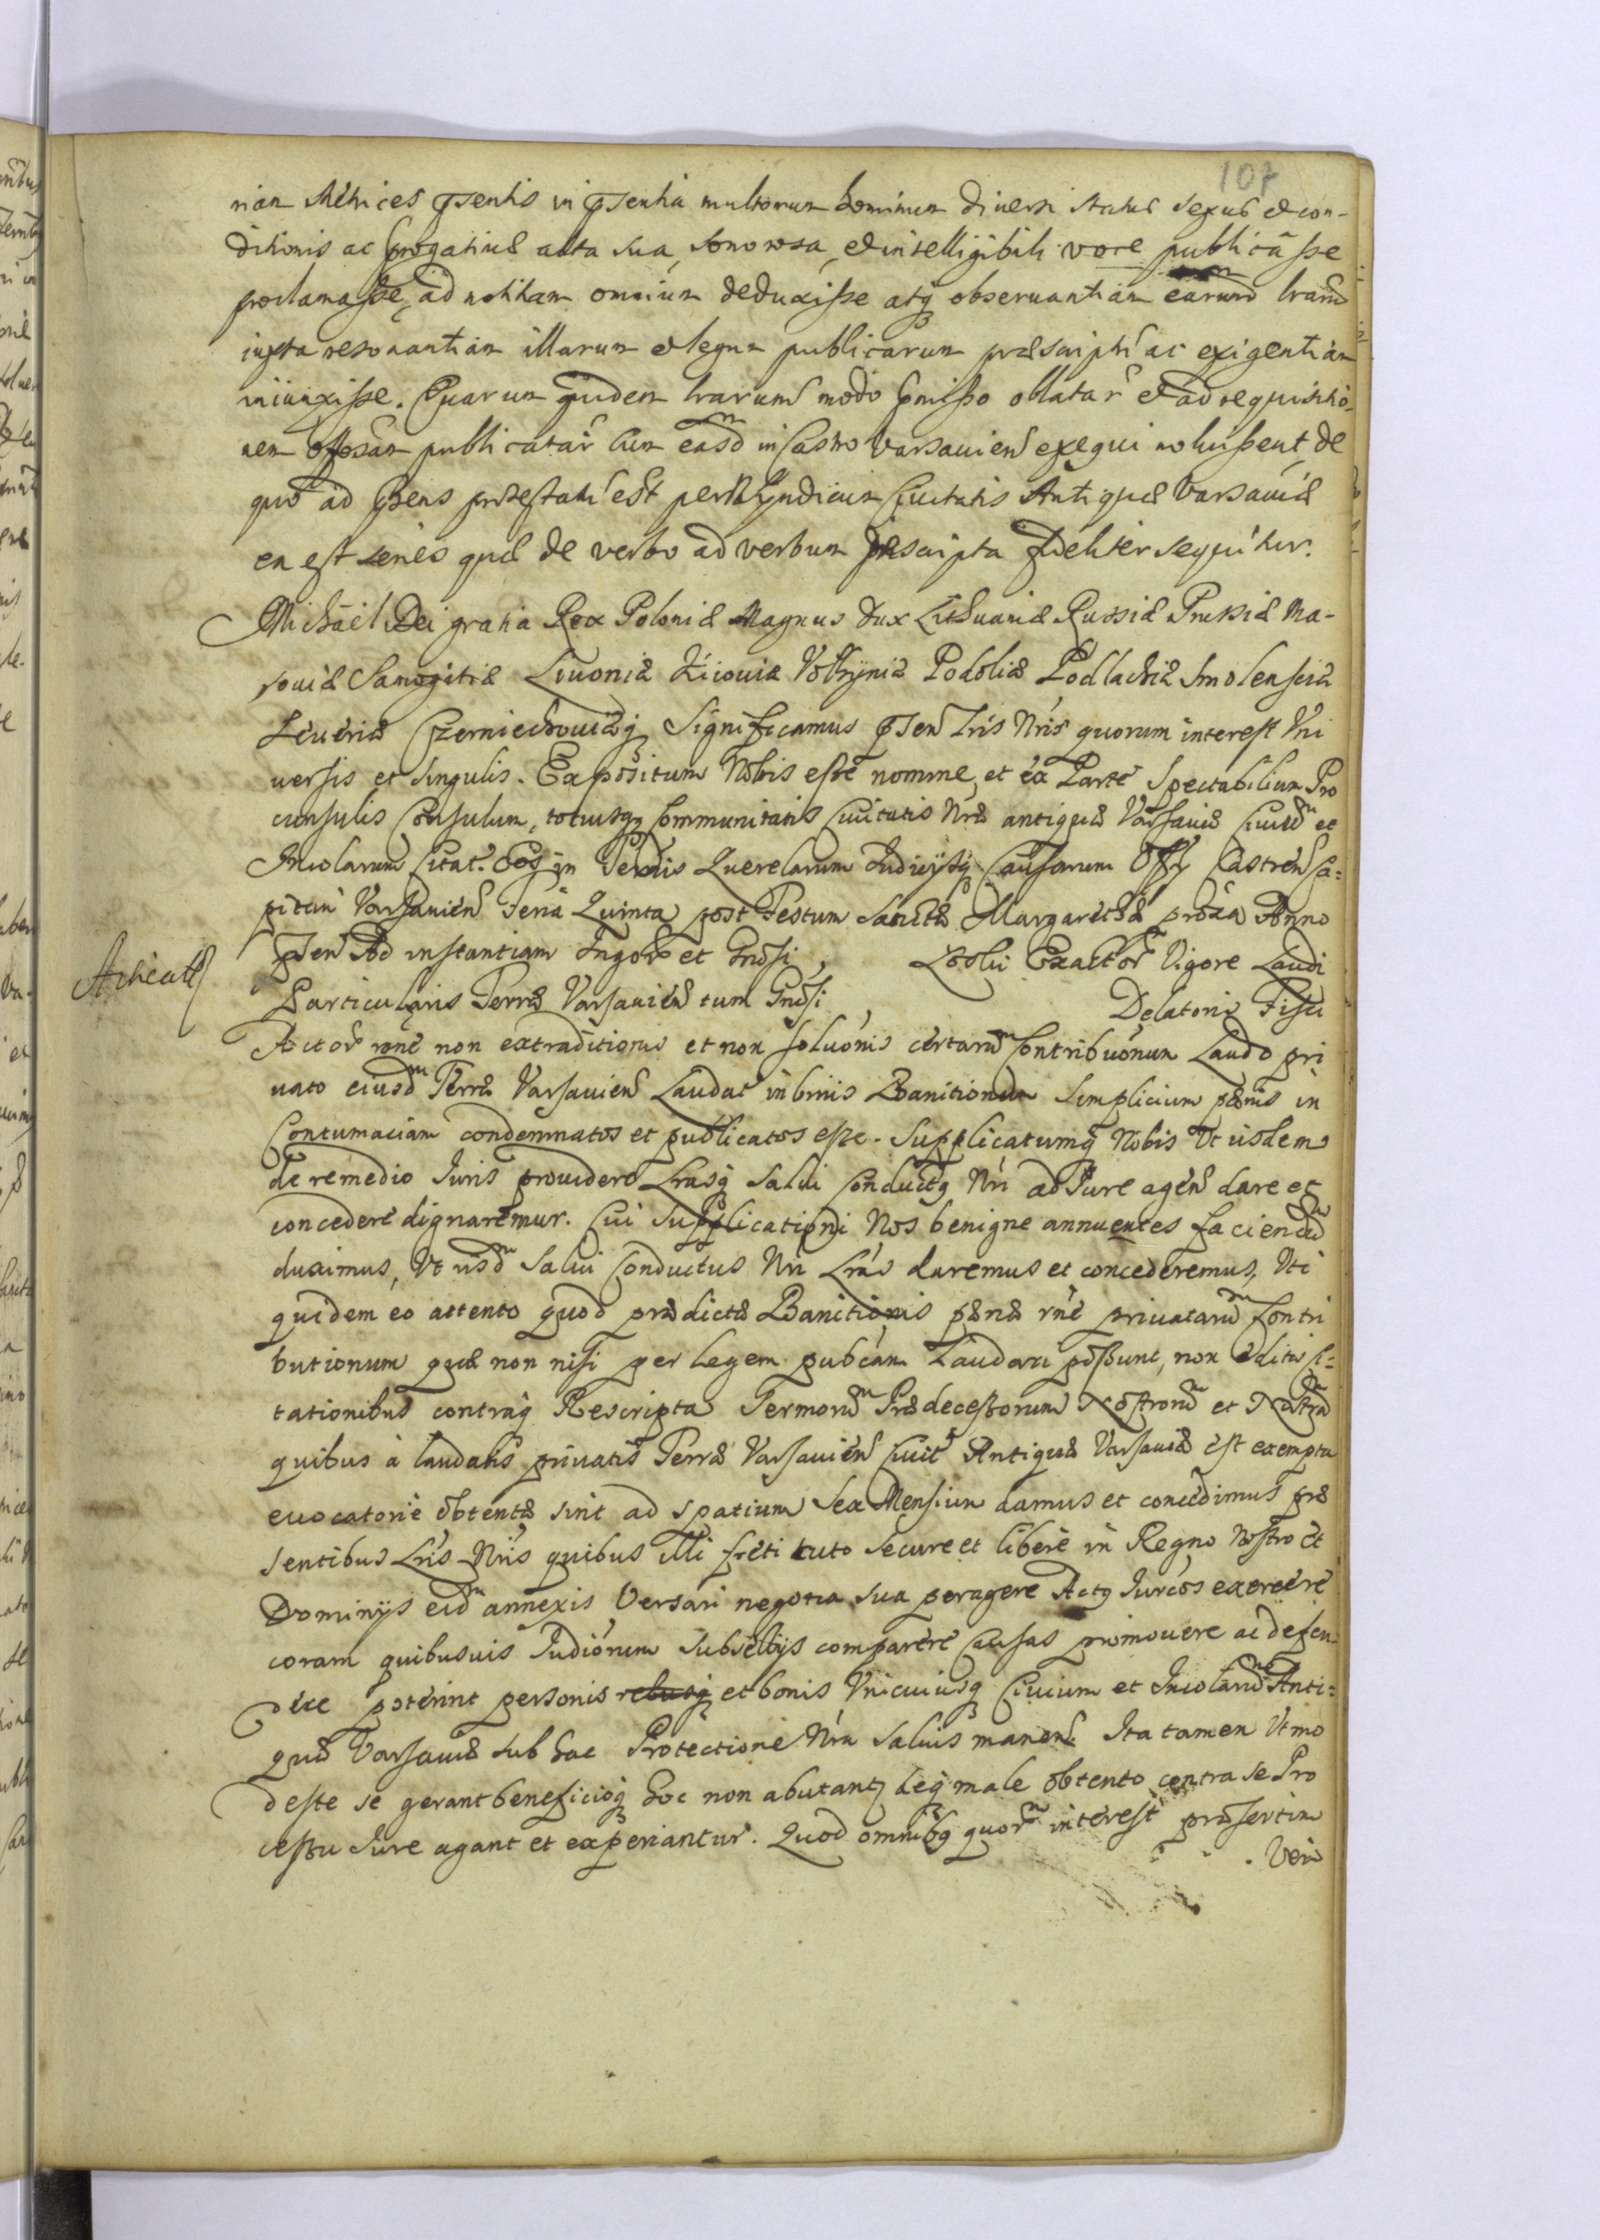 107
rian Metrices psentis in psentia multorum hominum diversi status sexus et con-
ditionis ac prerogativæ alta sua, sonorosa, et intelligibili voce publicasse
proclamasse, ad notitiam omnium deduxisse atq observantiam earund lrarum
iuxta resonantiam illarum et legum publicarum præscripti ac exigentiam
iniunxisse. Quarum quidem lrarum modo pmisso oblatar et ad requisitio-
nem offosam publicatar cum easdm in Castro Varsavien exequi noluissent, de
quo ad psens protestatu est per Nlem Syndicum Civitatis Antiquæ Varsaviæ
ea est series quæ de verbo ad verbum descripta fideliter sequitur.
Michael Dei gratia Rex Poloniæ Magnus Dux Lithuaniæ Russiæ Prussiæ Ma-
soviæ Samogitiæ Livoniæ Kijoviæ Volhyniæ Podoliæ Podlachiæ Smolensciæ
Severiæ Czerniechoviæq Significamus psen Lris Nris quorum interest Vni
versis et singulis. Expositum Nobis esse nomine, et ex Parte Spectabilium Pro
cunsulis Consulum, totiusq Communitatis Civitatis Nræ antiquæ Varsaviæ Civium et
Incolarum Citat. Eos in Termis Querelarum Iudicijsq Causarum Offy Castren Ca-
pitan Varsavien Feria Quinta post Festum Sanctæ Margarethæ proxa Anno
psen Ad instantiam Ingor et Gnosi, Lochi Exactor Vigore Laudi
Particularis Terræ Varsavien tum Gnosi, Delatoris Fisci
Actor rone non extraditionis et non solvonis certarum Contribuonum Laudo pri
vato eiusdm Terræ Varsavien Laudat in binis Banitionum simplicium pænis in
Contumaciam condemnatos et publicatos esse. Supplicatumq Nobis Vt iisdem
de remedio Iuris providere Lrasq Salvi Conductq Nri ad Iure agen dare et
concedere dignaremur. Cui Supplicationi Nos benigne annuentes faciend
duximus, Vt iisdm Salvi Conductus Nri Lras daremus et concederemus, Vti
quidem eo attento quod prædictæ Banitionis pænæ rne privatarum Contri
butionum quæ non nisi per Legem pubcam Laudari possunt, non editis Ci-
tationibus contraq Rescripta Sermorum Prædecessorum Nostrorum et Nostra
quibus à laudatis privatis Terræ Varsavien Civit Antiquæ Varsaviæ est exempta
evocatorie obtentæ sint ad spatium Sex Mensium damus et concedimus præ
sentibus Lris Nris quibus illi freti tuto secure et libere in Regno Nostro et
Dominijs eidm annexis Versari negotia sua peragere Actq Iurcos exercere
coram quibusvis Iudiorum Subsellijs comparere Causas promovere ac defen-
dere poterint personis rebusq et bonis Vniuscuiusq Civium et Incolarum Anti-
quæ Varsaviæ sub hac Protectione Nra salvis manen. Ita tamen Vt mo
deste se gerant beneficioq hoc non abutant Legq male obtento contra se Pro
cessu Iure agant et experiantur. Quod omnibq quorm interest præsertim
Verò